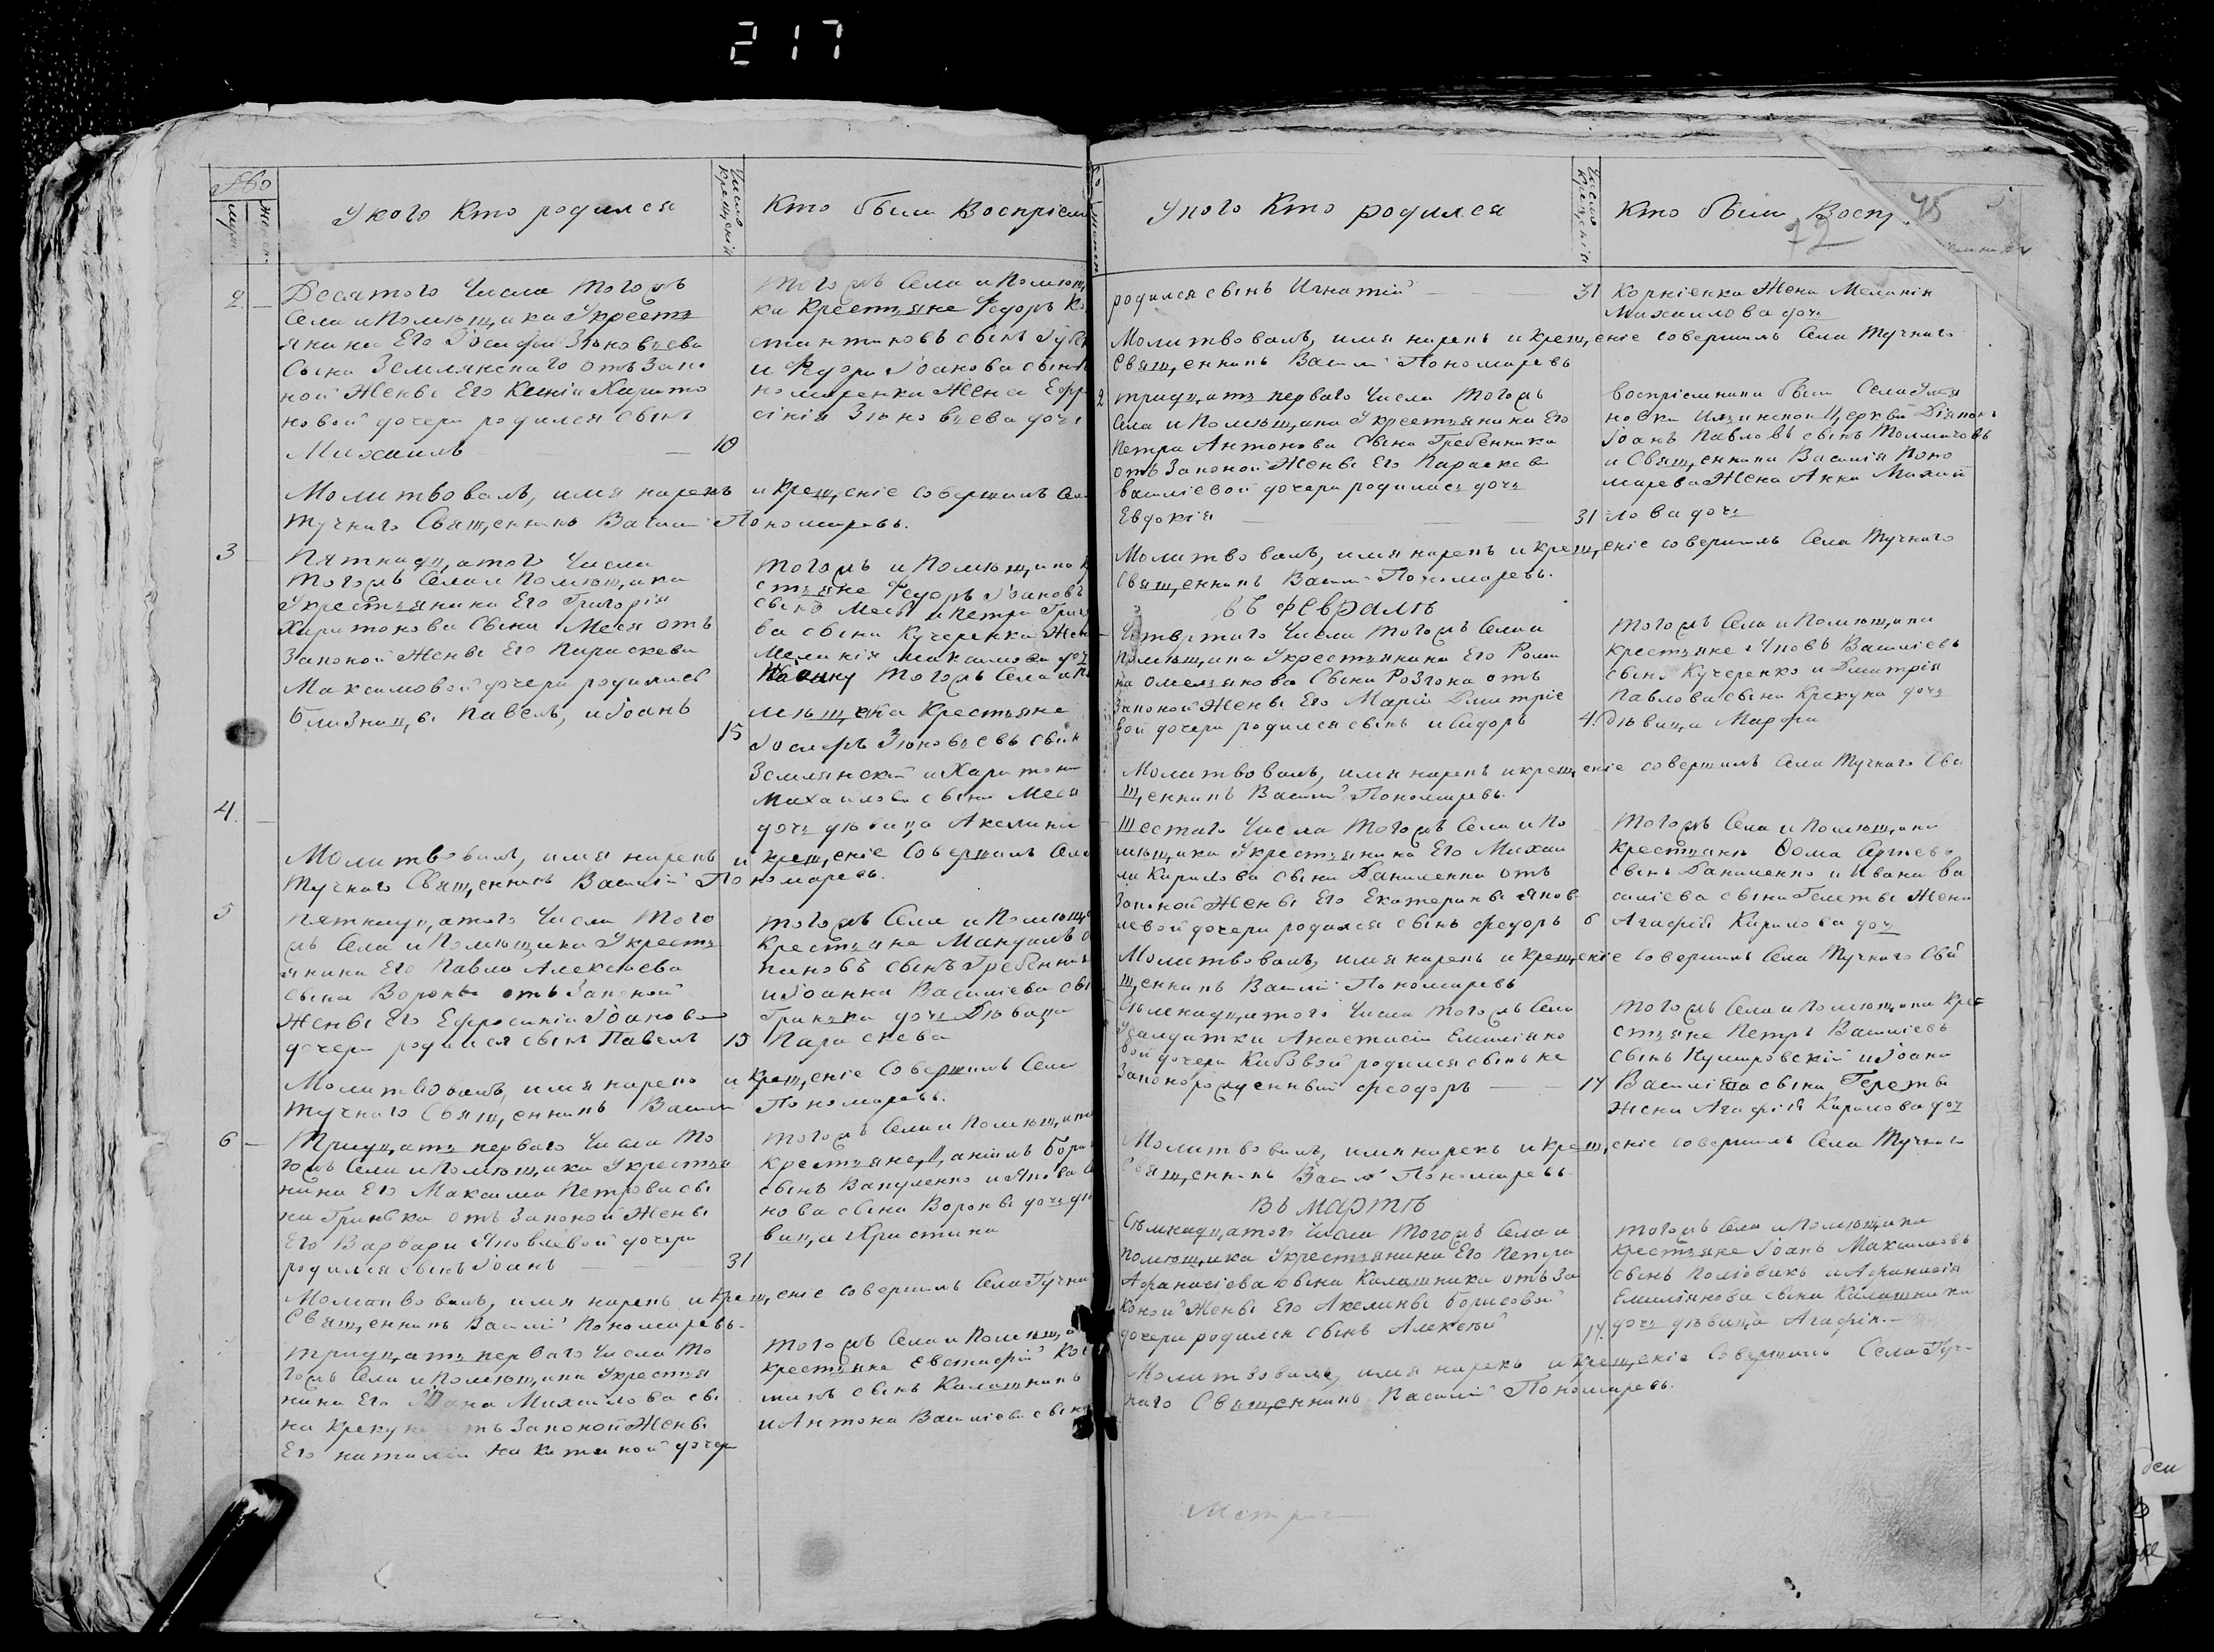 217
Число крещенія
У кого Кто родился
Кто был Воспріем
2
Десятого Числа того жъ
Села и Помѣщика У крестъ
янина Его Іосифа Зѣновьева
Сына Землянского отъ Зако
ной Жены Его Ксеніи Харито
новой дочери родился сынъ
Михаилъ
10
того жъ Села и Помѣщ
ка Крестьяне Федоръ Ко
стантиновъ сынъ
и Федора Іоанова сына
номаренка Жена Ефр
сінія Зѣновьева дочь
Молитвовалъ, имя нарекъ и крещеніе совершилъ Сел
тучного Священникъ Василій Пономаревъ.
3
Пятнадцатого Числа
того жъ Села и Помѣщика
У крестьянина Его Григорія
Харитонова Сына Меся отъ
Законой Жены Его Параскева
Максимовой дочери родились
близнцы Павелъ, и Іоанъ
15
4.
того жъ и Помѣщика К
стьяне Федоръ Іоановъ
сынъ Месь и Петра Григ
ва сына Кучеренка Жен
Меланія Максимова доч
того жъ Села и По
мѣщека Крестьяне
Іосифъ Зѣновьевъ сын
Землянскій и Харитона
Михайлова сына Меся
дочь дѣвица Акелина
Молитвовалъ, имя нарекъ и крещеніе Совершилъ Сел
тучного Священникъ Василій Пономаревъ.
5
Пятнадцатого Числа того
жъ Села и Помѣщика У кресть
янина Его Павла Алексѣева
сына Вороны отъ Законой
Жены Его Ефросиніи Іоановой
дочери родился сынъ Павелъ
15
того жъ Села и Помѣщ
Крестьяне Мануилъ
пиновъ сынъ Гребенник
и Іоанна Василіева сы
Гринька дочь Дѣвица
Параскева
Молитвовалъ, имя нарекъ и Крещеніе Совершилъ Села
тучного Священникъ Василій Пономаревъ.
6
Тридцать первого Числа То
гожъ Села и Помѣщика У крестья
нина Его Максима Петрова сы
на Гринька отъ Законой Жены
Его Варвары Яковлевой дочери
родился сынъ Іоанъ
31
того жъ Села и Помѣщика
крестьяне, Даніилъ Бори
сынъ Вакуленко и Якова
нова сына Вороны дочь дѣ
вица Христина
Молитвовалъ, имя нарекъ и крещеніе совершилъ Села Тучна
Священникъ Василій Пономаревъ.
тридцать первого Числа То
гожъ Села и Помѣщика У крестья
нина Его Михайлова сы
на Крекуна отъ Законой Жены
Его наталіи Никитиной дочери
того жъ Села и Помѣщ
крестьяне Евстафій Кос
сынъ Калашникъ
и Антона Василіева сына
У кого Кто родился
Число Крещенія
Кто был Восп
72
45
родился сынъ Игнатій
31
Корніенка Жена Меланія
Михаилова дочь
Молитвовалъ, имя нарекъ и крещеніе совершилъ Села Тучного
Священникъ Василій Пономаревъ
2
тридцать первого Числа того жъ
Села и Помѣщика У крестьянина Его
Петра Антонова Сына Гребенника
отъ Законой Жены Его Параскева
Василіевой дочери родилась дочь
Евдокія
31
воспріемники были Села
Церкви Дьяконъ
Іоанъ Павловъ сынъ Толмачовъ
и Священника Василія Поно
марева Жена Анна Михай
лова дочь
Молитвовалъ, имя нарекъ и крещеніе совершилъ Села Тучного
Священникъ Василій Пономаревъ.
въ февралѣ
Четвертого Числа того жъ Села и
Помѣщика У крестьянина Его Рома
на Омельянова Сына Розгона отъ
Законой Жены Его Маріи Дмитріе
вой дочери родился сынъ Исидоръ
4.
того жъ Села и Помѣщика
крестьяне Яковъ Василіевъ
сынъ Кучеренко и Дмитрія
Павлова сына Крекуна дочь
дѣвица Марфа
Молитвовалъ, имя нарекъ и крещеніе совершилъ Села Тучного Свя
щенникъ Василій Пономаревъ.
Шестого Числа того жъ Села и По
мѣщика У крестьянина Его Михаи
ла Кирилова сына Даниленка отъ
Законой Жены Его Екатерины Яков
левой дочери родился сынъ федоръ
6
того жъ Села и Помѣщика
Крестьяне Фома Сергѣевъ
сынъ Даниленко и Ивана Ва
силіева сына Гепеты Жена
Агафія Кирилова дочь
Молитвовалъ, имя нарекъ и крещеніе совершилъ Села Тучного Свя
щенникъ Василій Пономаревъ
Сѣмнадцатого Числа того жъ Села
У салдатки Анастасіи Емиліано
вой дочери Кибовой родился сынъ не
Законорожденный феодоръ
17
того жъ Села и Помѣщика Кре
стьяне Петръ Василіевъ
сынъ Пушировскій и Іоана
Василіева сына Гережы
жена Агафія Кирилова доч
Молитвовалъ, имя нарекъ и крещеніе совершилъ Села Тучного
Священникъ Василій Пономаревъ
въ мартѣ
Сѣмнадцатого Числа того жъ Села и
Помѣщика У крестьянина Его Петра
Афанасіева сына Калашника отъ За
коной Жены Его Акелины Борисовой
дочери родился сынъ Алексѣй
17.
того жъ Села и Помѣщика
крестьяне Іоанъ Максимовъ
сынъ Полювикъ и Афанасія
Емиліанова сына Калашника
дочь дѣвица Агафія.
Молитвовалъ, имя нарекъ и крещеніе Совершилъ Села Туч-
ного Священникъ Василій Пономаревъ.